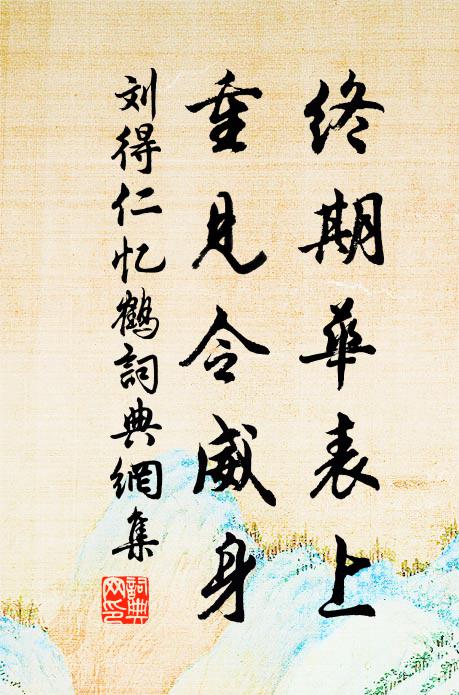 终期华表上
重见令威身
刘得仁忆鹤詞典網集
詞典